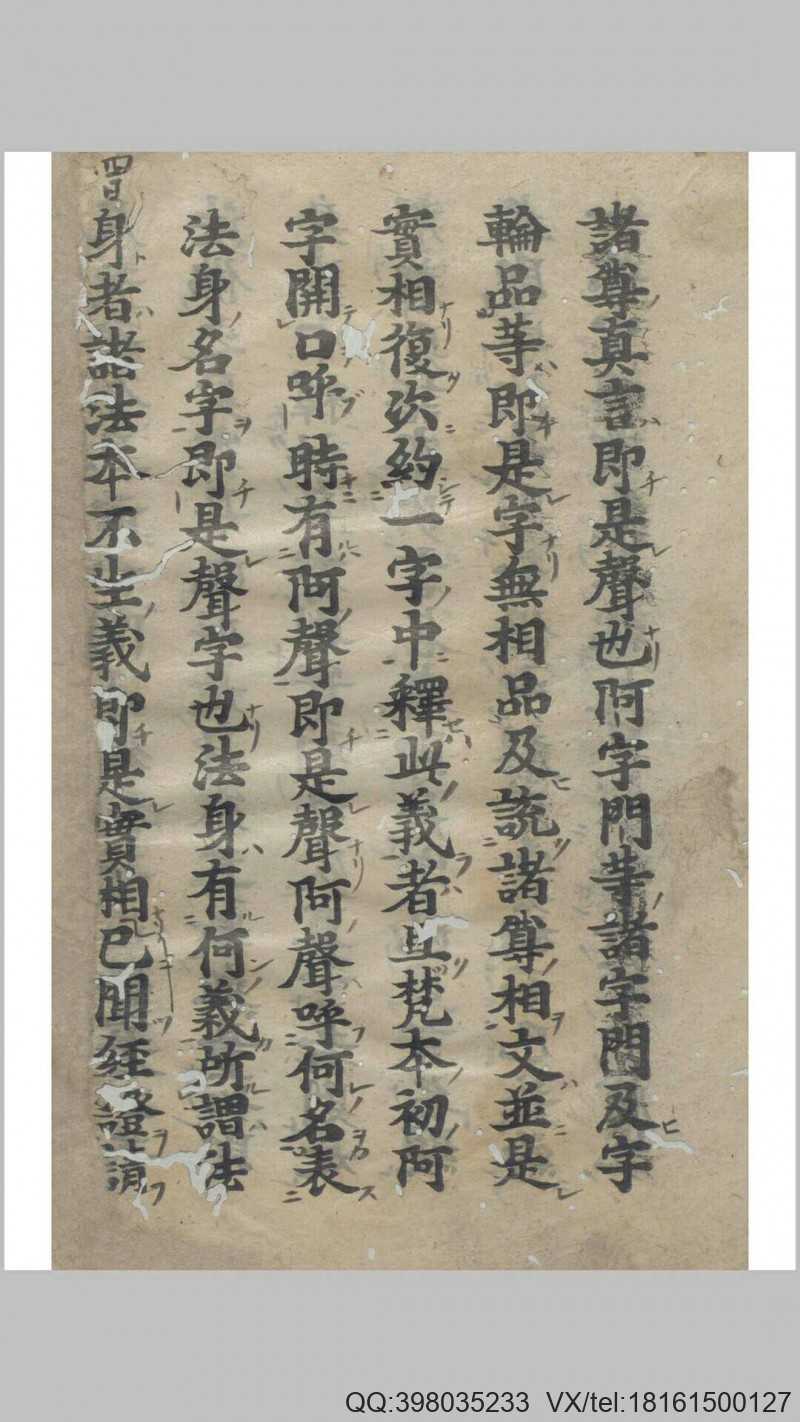 諸尊真言即是聲也阿字門等諸字門及字
輪品等即是字無相品及說諸尊相文並是
實相復次約一字中釋此義者且梵本初阿
字開口呼時有阿聲即是聲阿聲呼何名表
法身名字即是聲字也法身有何義所謂法
身者諸法本不生義即是實相已聞經證請
QQ:398035233 VX/tel:18161500127